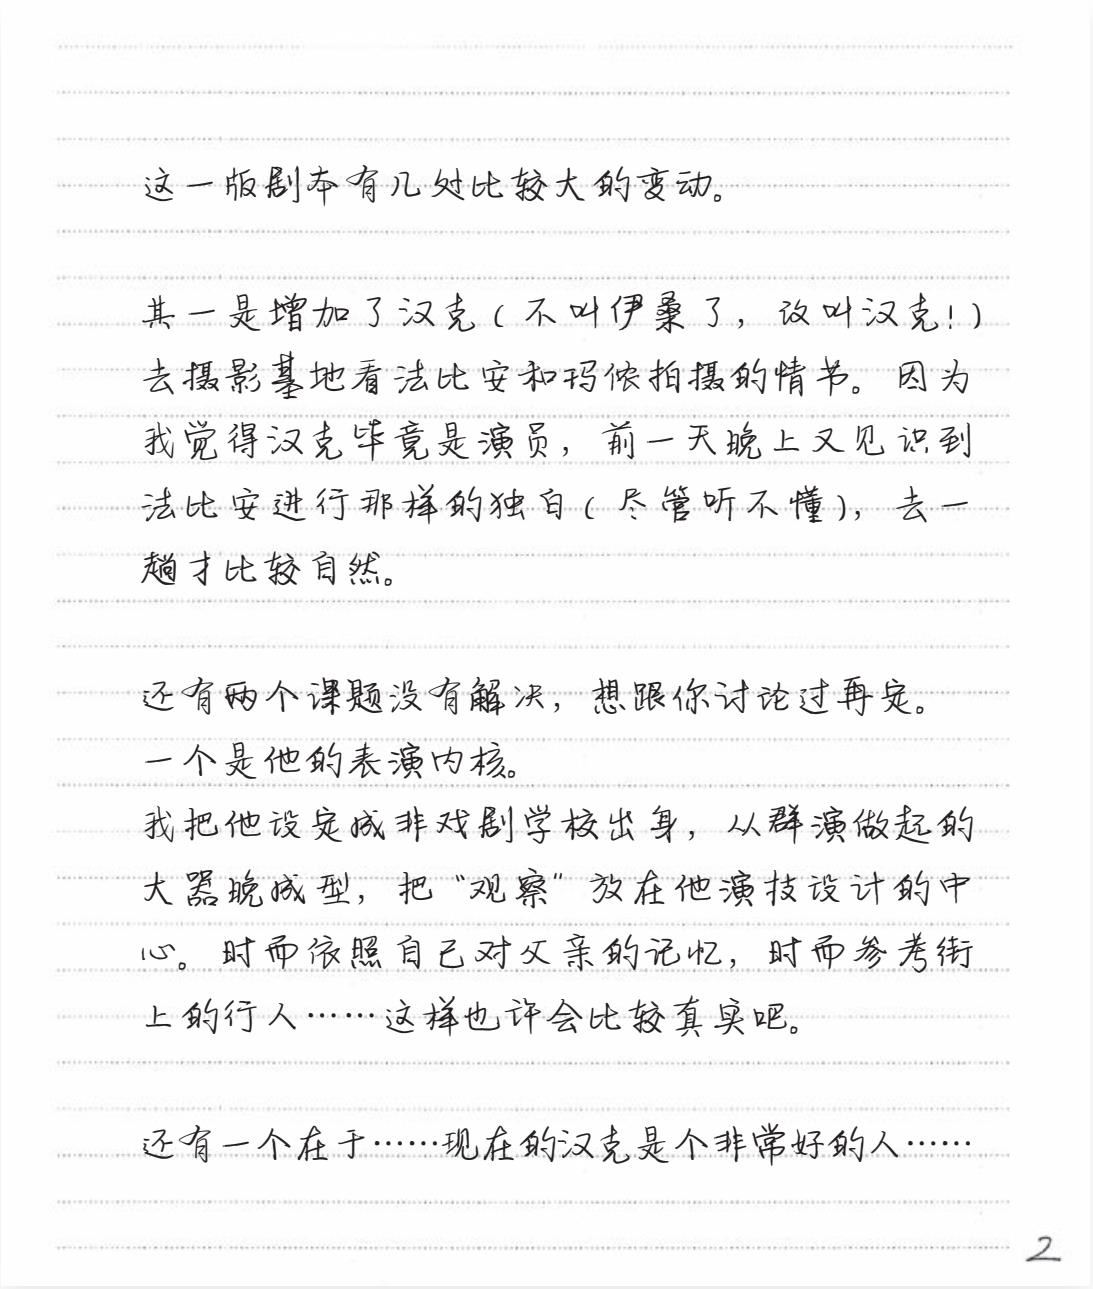 这一版剧本有几处比较大的变动。
其一是增加了汉克(不叫伊桑了，改叫汉克!)
去摄影基地看法比安和玛侬拍摄的情节。因为
我觉得汉克毕竟是演员，前一天晚上又见识到
法比安进行那样的独白(尽管听不懂)，去一
趟才比较自然。
还有两个课题没有解决，想跟你讨论过再定。
一个是他的表演内核。
我把他设定成非戏剧学校出身，从群演做起的
大器晚成型，把“观察”放在他演技设计的中
心。时而依照自己对父亲的记忆，时而参考街
上的行人……这样也许会比较真实吧。
还有一个在于……现在的汉克是个非常好的人……
2